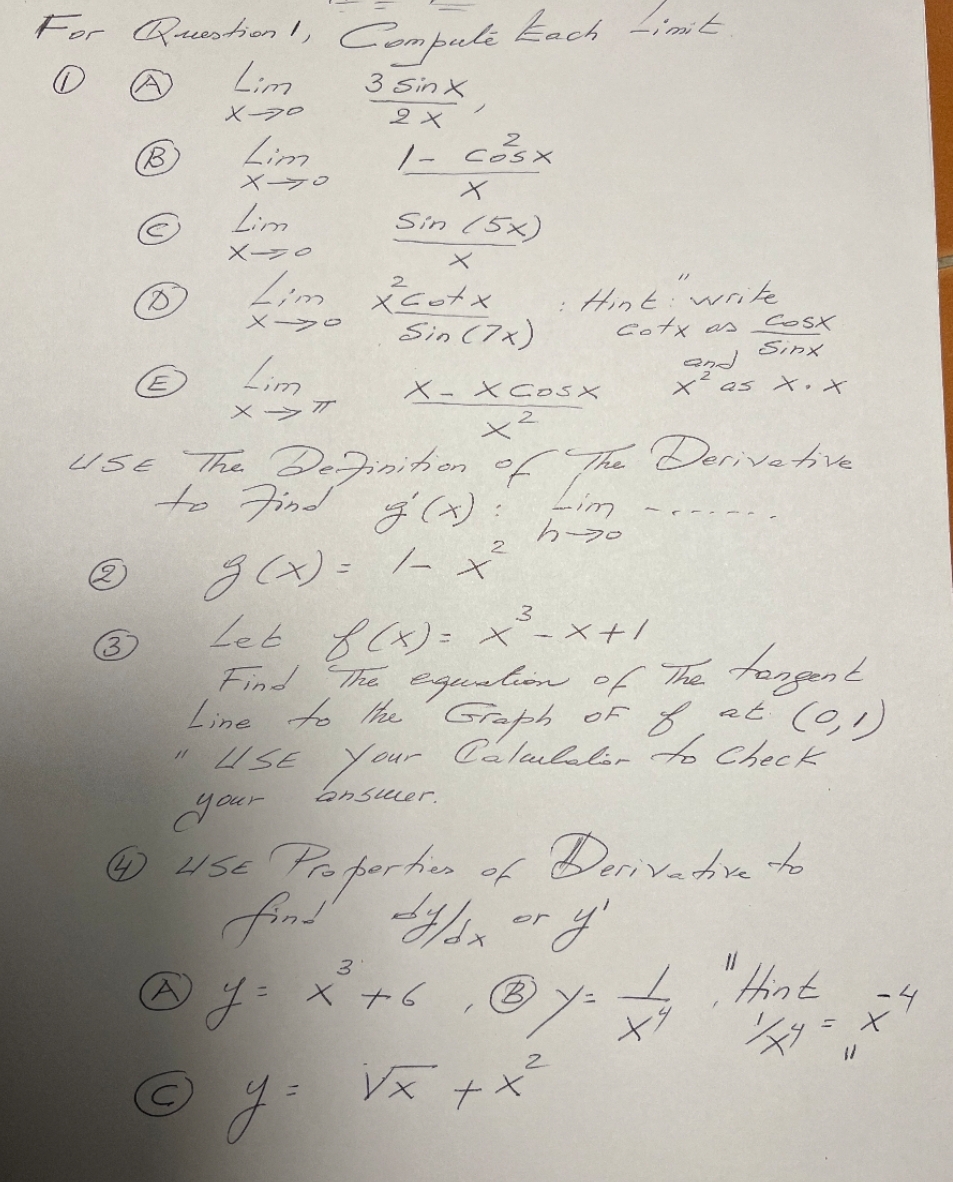 For Question 1, Compute Each Limit.
① Ⓐ Lim x→0 3 sin x / 2x ,
Ⓑ Lim x→0 1 - cos²x / x
Ⓒ Lim x→0 Sin (5x) / x
Ⓓ Lim x→0 x² cot x / Sin (7x) : Hint: "write cotx as cosx / sinx and x² as x · x
Ⓔ Lim x→π x - x cos x / x²
USE The Definition of The Derivative
to Find g'(x) : Lim h→0 -------
② g(x) = 1 - x²
③ Let f(x) = x³ - x + 1
Find The equation of The tangent
Line to the Graph OF f at (0,1)
" USE your Calculator to Check
your answer.
④ USE Properties of Derivative to
find dy/dx or y'
Ⓐ y = x³ + 6 , Ⓑ y = 1 / x⁴ , "Hint 1/x⁴ = x⁻⁴ "
Ⓒ y = √x + x²